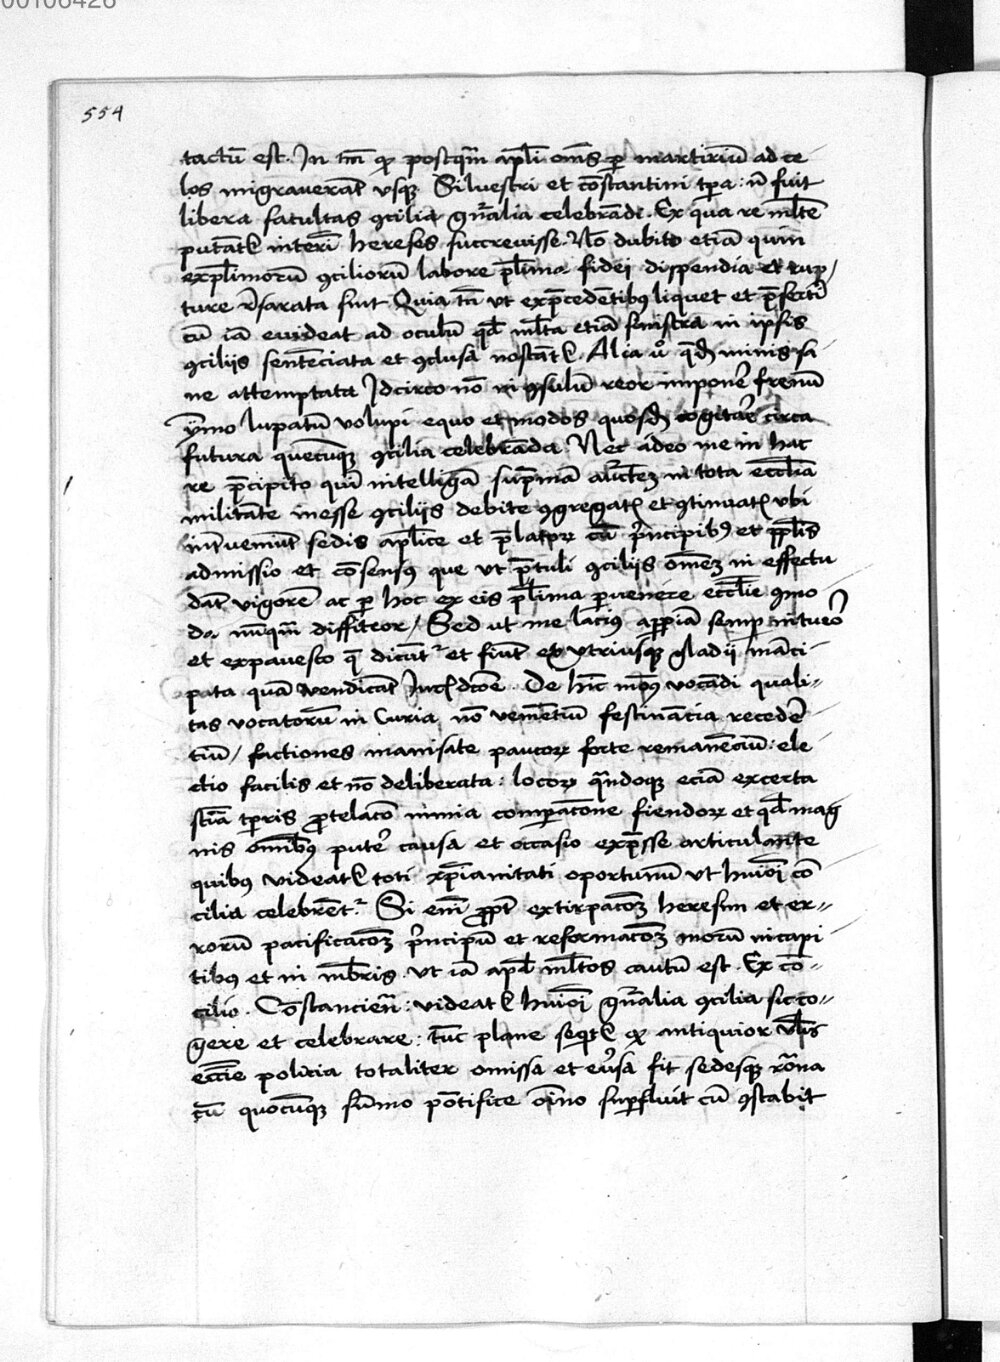 00106426
554
tactū est. In tm̄ qꝫ postqm̄ apl̄i om̄s ꝑ martiriū ad ce
los migraverāt vsqꝫ Silvestri et cōstantini tꝑa: nō fuit
libera facultas ꝯcilia gn̄alia celebrādi. Ex qua re ml̄te
putātr interī hereses succrevisse. Nō dubito etiā quin
expl̄imorū ꝯciliorū labore pl̄ima fidei dispendia et rup/
ture r̄sarata sint Quia tn̄ ut exp̄cedētibꝰ liquet et p̄sertī
cū iā evideat ad oculū qd̄ ml̄ta etiā sinistra in ipsis
ꝯciliis sentēciata et ꝯclusa nostātr. Alia v̊ qd̄ minis sa
ne attemptata Idcirco nō in ꝯsultū reor imponē frenū
ymo lupatū volupi equo et modos quosd̄ cogitāe circa
futura quecūqꝫ ꝯcilia celebrāda Nec adeo me in hac
re p̄cipito quī intelligā sup̄mā auctē in tota eccl̄ia
militāte inesse ꝯciliis debite ꝯgregatꝭ et ꝯtinuatꝭ vbi
int̄veniūt sedis apl̄ice et p̄latoꝝ cū p̄ncipibꝰ et ppl̄is
admissio et cōsensꝰ que ut p̄tuli ꝯciliis om̄eꝫ in effectu
dāt vigorē ac ꝑ hoc ex eis pl̄ima ꝑvenire eccl̄ie ꝯmo
da nūqm̄ diffiteor/ Sed ut me laciꝰ apꝑiā semp intueor
et expavesco q̄ dicūtr et fiūt ex vtriusqꝫ gladii māci
pata quā vendicāt Iurisdcōe. De hīc
tas vocatorū in Curia nō venietiū festinātia recedē
tiū/ factiones manisate paucoꝝ forte remanēciū: ele
ctio facilis et nō deliberata: locoꝝ qn̄doqꝫ eciā excerta
sciā tꝑris ꝓtelacō nimia comꝑacone fiendoꝝ et qd̄ mag
nis om̄ibꝰ putē causa et occasio exp̄sse articulante
quibꝰ videatr toti xp̄ianitati oportunū ut huiōi cō
cilia celebrētr. Si em̄ ꝓpt̄ extirpacōeꝫ heresim et er
rorū pacificacōeꝫ p̄ncipū et reformacōeꝫ morū in capi
tibꝰ et in mēbris. vt iā apd̄ ml̄tos cautū est. Ex cō
cilio. Cōstancien̄: videatr huiōi gn̄alia ꝯcilia sic co
gere et celebrare: tūc plane seqtr qꝫ antiquior vl̄is
eccīe policia totaliter omissa et ev̄sa sit sedesqꝫ rōna
cū quocūqꝫ sūmo pōtifice oīno suꝑfluit cū ꝯstabit